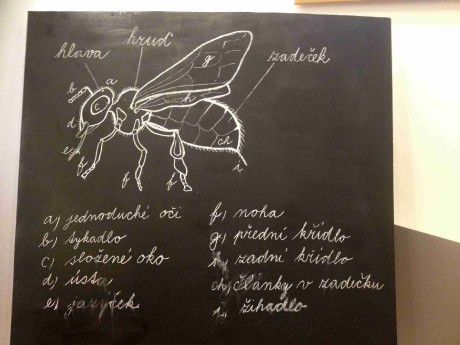 hlava
hruď
zadeček
a
g
b
c
h
d
e
ch
f
f
f
f
i
a) jednoduché oči
b) tykadlo
c) složené oko
d) ústa
e) jazýček
f) noha
g) přední křídlo
h) zadní křídlo
ch) články v zadečku
i) žihadlo